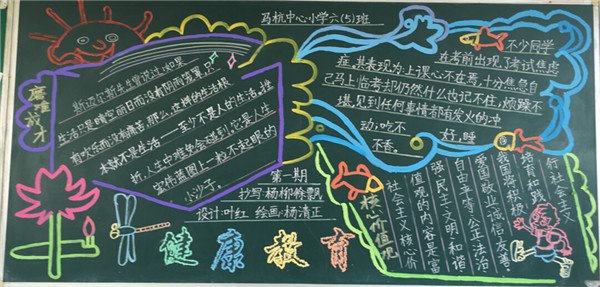 马杭中心小学六(5)班
磨难成才
斯迈尔斯先生曾说过:如果
生活只是晴空丽日而没有阴雨笼罩,只
有欢乐而没有痛苦,那么,这样的生活根
本就不是生活——至少不是人的生活。挫
折,人生中难免会碰到,它是人生
宏伟蓝图上一粒不起眼的
小沙子。
不少同学
在考前出现了考试焦虑
症,其表现为:上课心不在焉,十分焦急自
己马上临考却仍然什么也记不住,烦躁不
堪,见到任何事情都有发火的冲
动,吃不好,睡
不香。
第一期
抄写:杨柳 徐飘
设计:叶红 绘画:杨清正
核心价值观
社会主义核心价
值观的内容是富
强民主文明和谐
自由平等公正法治
爱国敬业诚信友善。
我国将积极
培育和践
行社会主义
健康教育